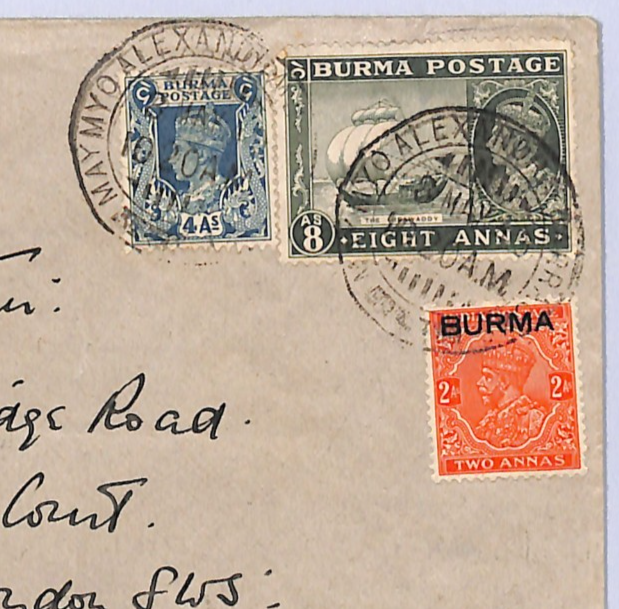 MAYMYO ALEXANDRA
BURMA
POSTAGE
4 AS
BURMA POSTAGE
THE IRRAWADDY
AS
8
EIGHT ANNAS
ALEXANDRA
MAY
A.M.
BURMA
2 As 2 As
TWO ANNAS
Road.
Court.
SW5: